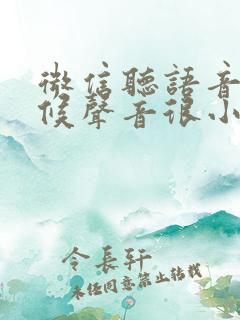 微信聽語音
候聲音很小
令長軒
未经同意禁止转载